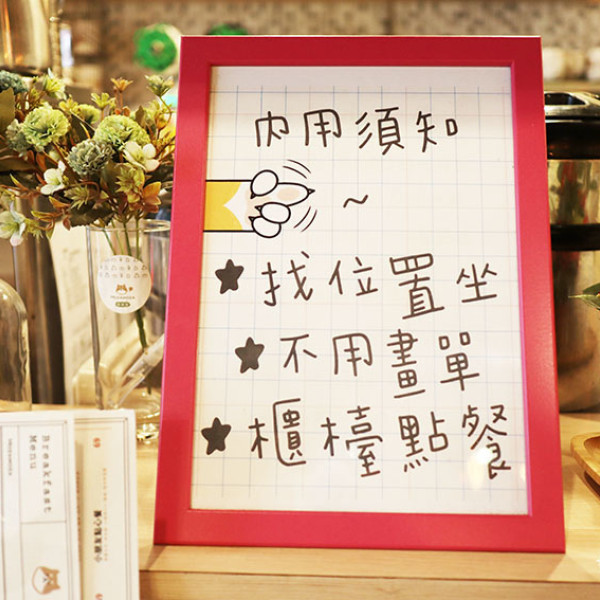 內用須知
~
★找位置坐
★不用畫單
★櫃檯點餐
BREAKFAST
MENU